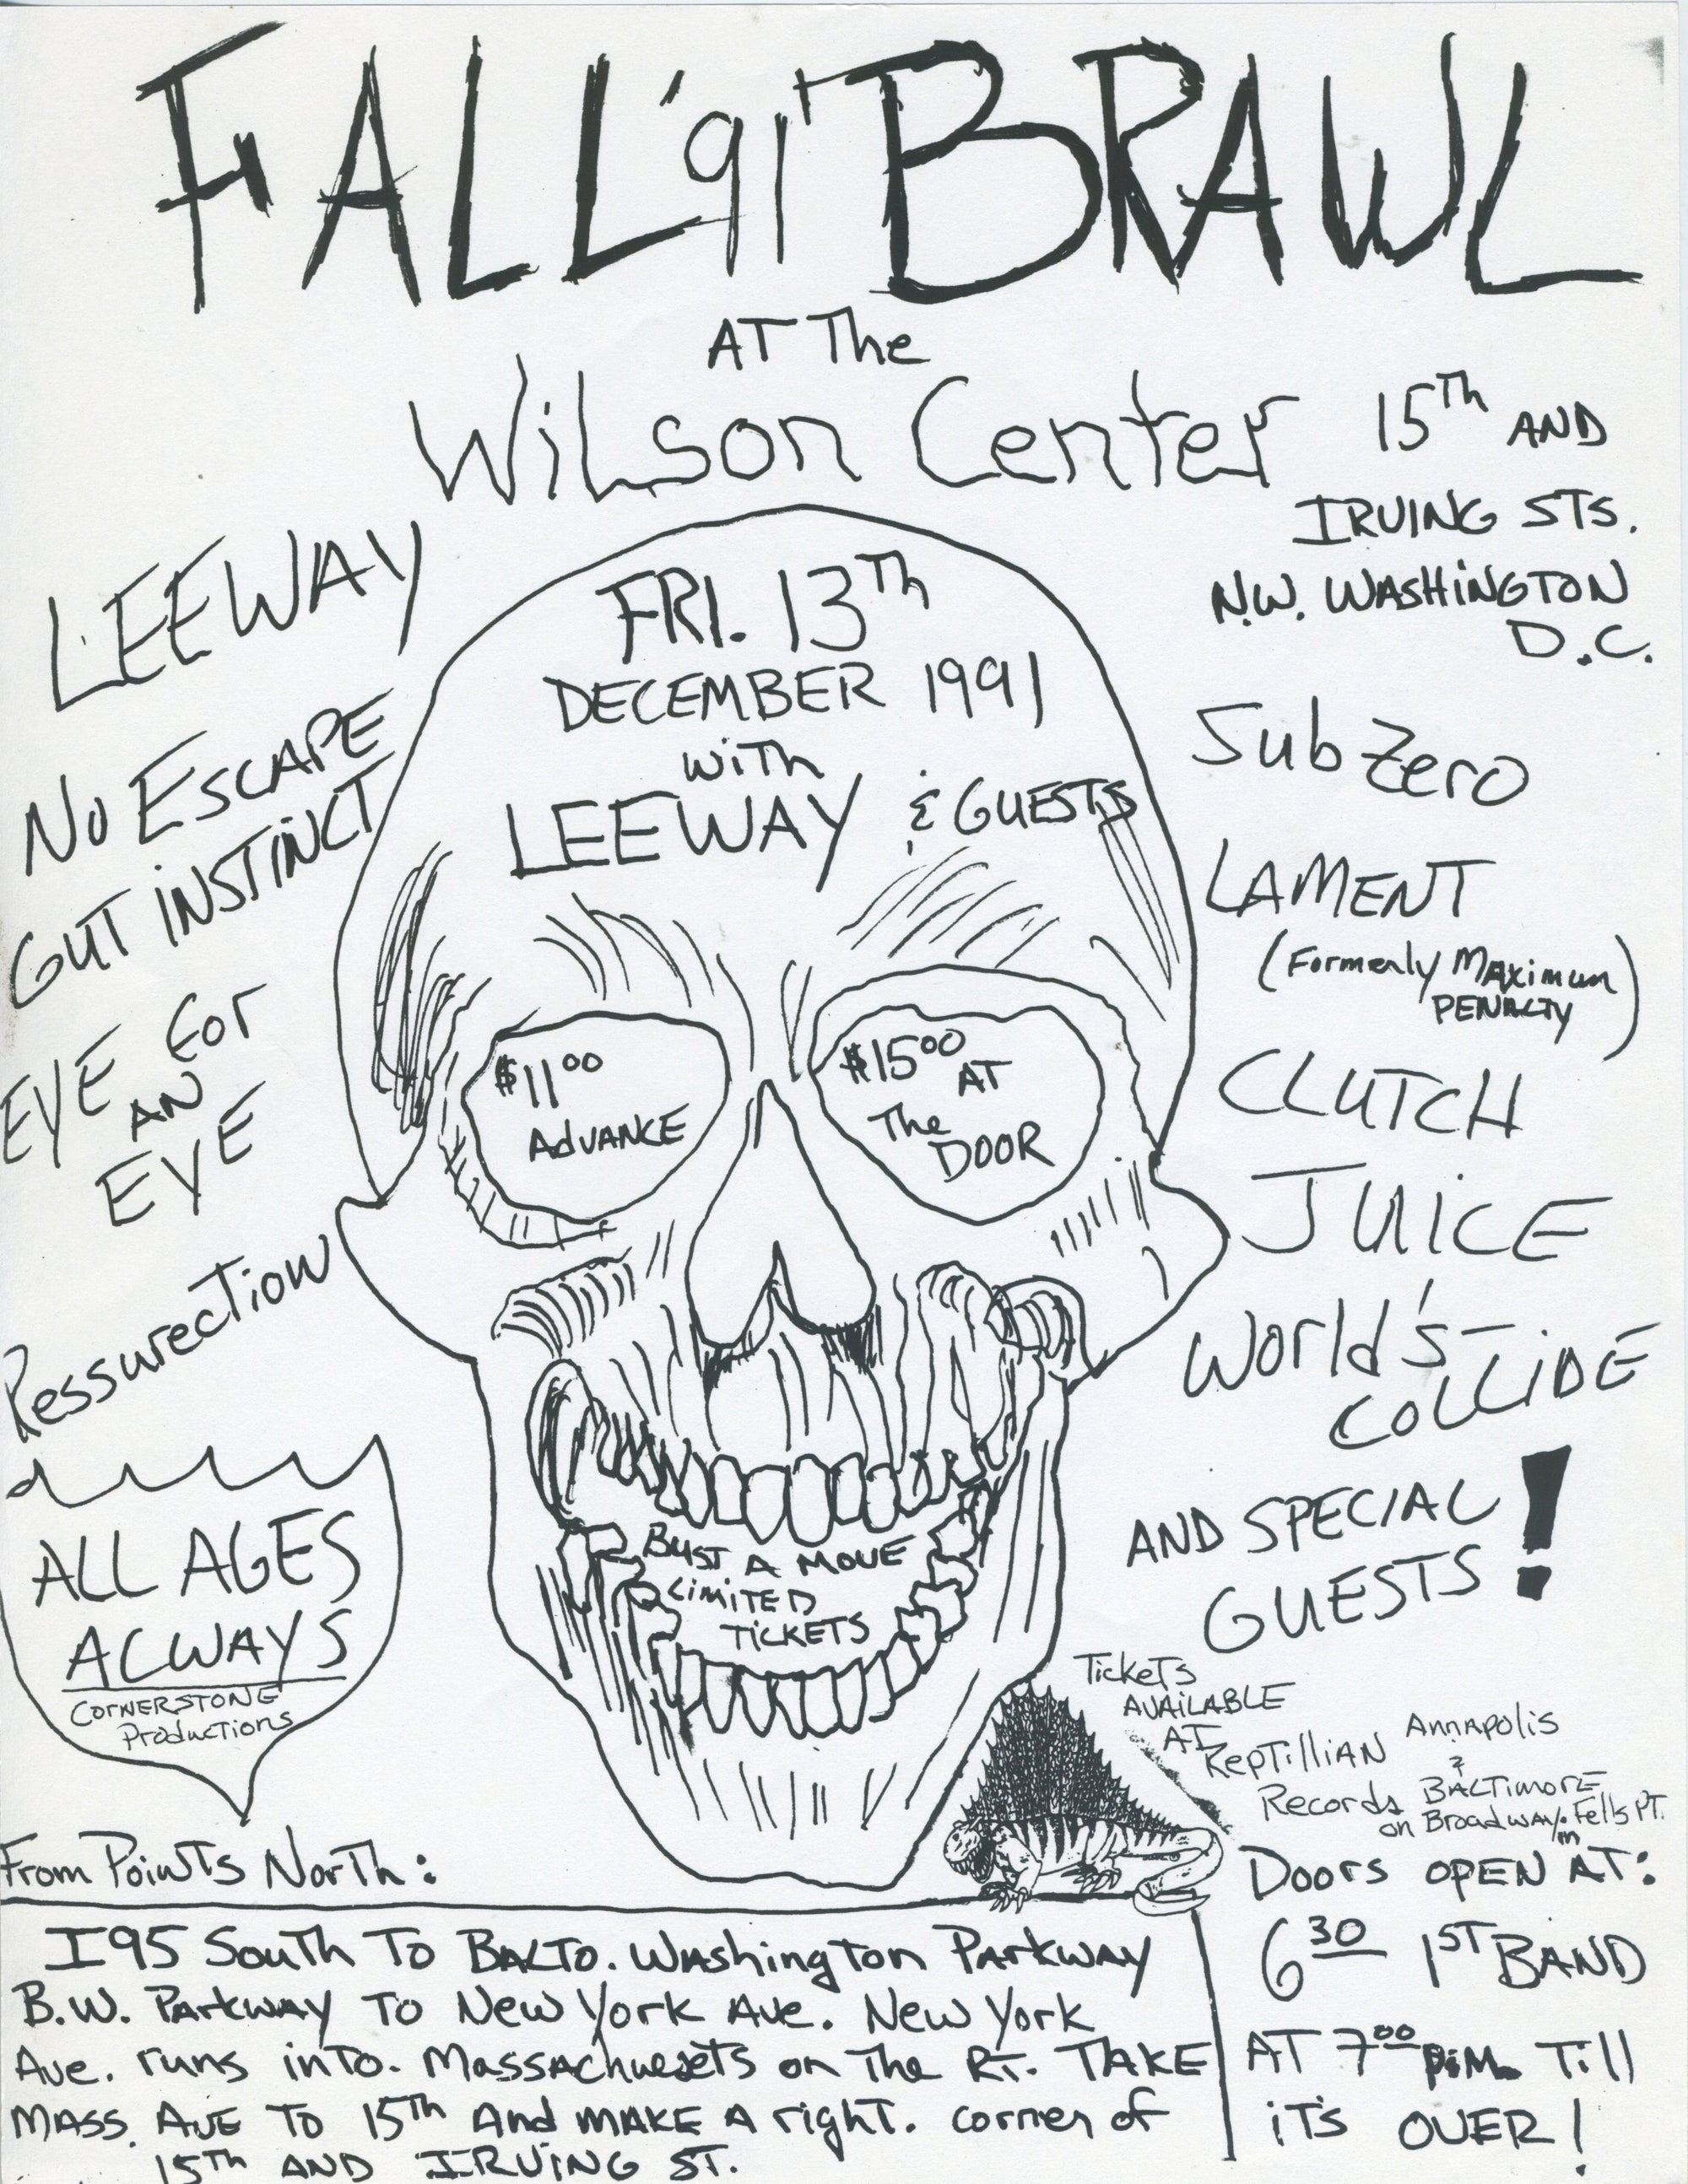 FALL '91' BRAWL
AT The
WiLson Center
15Th AND
IRVING STS.
N.W. WASHiNGTON
D.C.
LEEWAY
No ESCAPE
GUT iNSTiNCT
EYE for
AN
EYE
RessurecTion
FRI. 13Th
DECEMBER 1991
wiTh
LEEWAY & GUESTS
$11.00
AdVANCE
$15.00 AT
The
DOOR
BUST A MOVE
LiMiTED
TiCKETS
Sub Zero
LAMENT
(Formerly MAximum
PENALTY)
CLUTCH
JUiCE
World's
COLLiDE
AND SPECIAL
GUESTS!
ALL AGES
ALWAYS
CORNERSTONE
ProducTions
TickeTs
AVAiLABLE
AT
RepTilliAN
Records
AnnApolis
&
BALTimorE
on BroadwAy in Fells PT.
From PoinTs NorTh:
I95 SouTh To BALTO. WAshington PArkwAy
B.W. PArkwAy To New York Ave. New York
Ave. runs inTo. MassAchusetts on The RT. TAKE
MASS. AVE To 15Th And mAKE A righT. corner of
15Th AND IRVING ST.
Doors OPEN AT:
6 30 1ST BAND
AT 7 00 P.M. Till
iT's OVER!